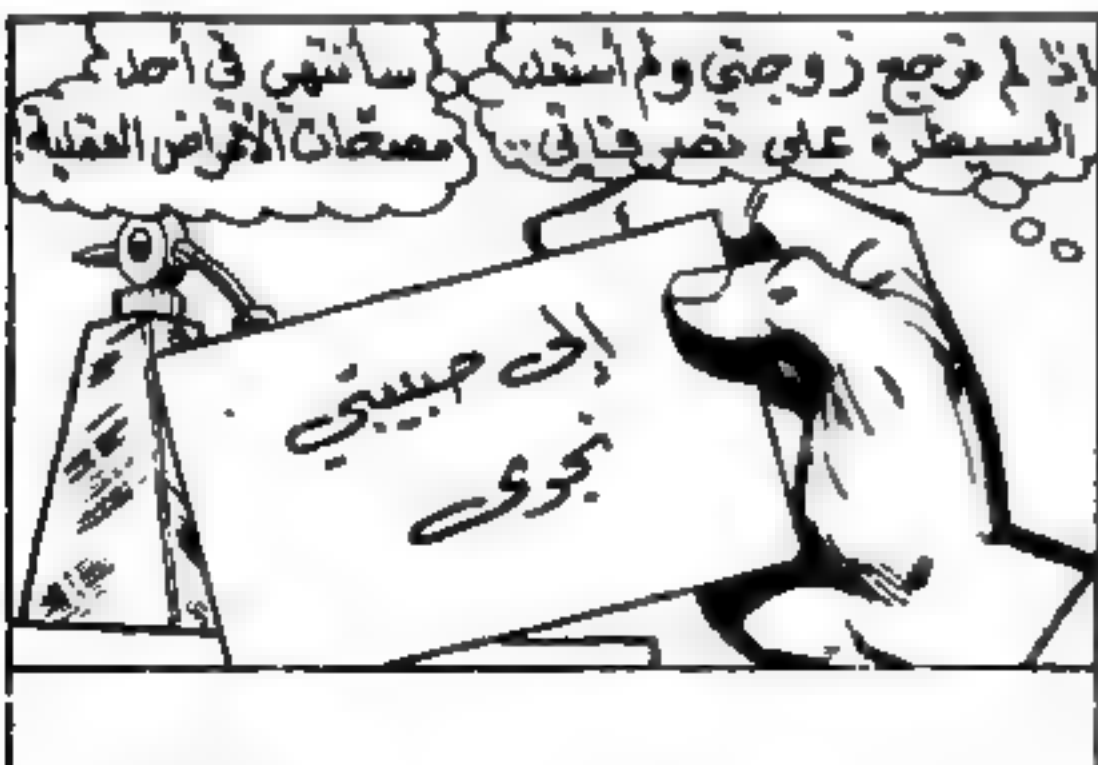 إذا لم ترجع زوجتي ولم استعد
السيطرة على تصرفاتي..
سأنتهي في احد
مصحّات الأمراض العقلية.
إلى حبيبتي
نجوى